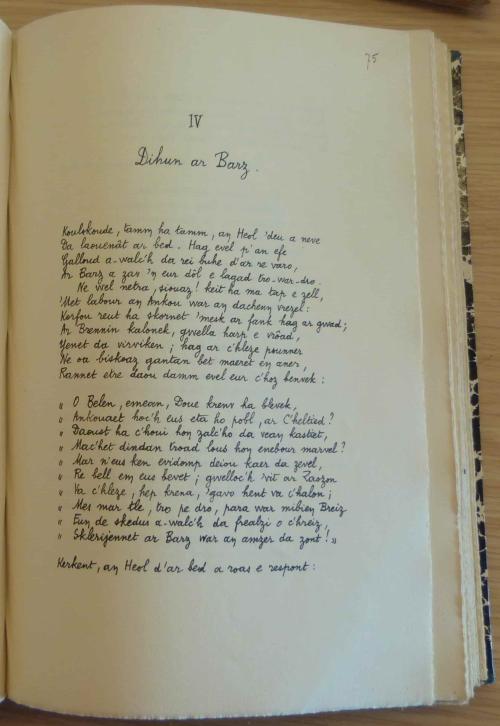 75
IV
Dihun ar Barz.
Koulskoude, tamm ha tamm, an Heol 'deu a neve
Da laouenât ar bed. Hag evel p'an efe
Galloud a-walc'h da rei buhe d'ar re varo,
Ar Barz a zav 'n eur dôl e lagad tro-war-dro.
Ne wel netra, siouaz! keit ha ma tap e zell,
'Met labour an Ankou war an dachenn vrezel:
Korfou reut ha skornet 'mesk ar fank hag ar gwad;
Ar Brennin kalonek, gwella harp e vrôad,
Yenet da virviken; hag ar c'hleze pounner
Ne oa biskoaz gantan bet maeret en aner,
Rannet etre daou damm evel eur c'hoz benvek:
" O Belen, emean, Doue krenv ha blevek,
" Ankouaet hoc'h eus eta ho pobl, ar C'heltied?
" Daoust ha c'houi hon zalc'ho da vean kastiet,
" Mac'het dindan troad lous hon enebour marvel?
" Mar n'eus ken evidomp deiou kaer da zevel,
" Re bell em eus bevet; gwelloc'h 'vit ar Raozon
" Va c'hleze, hep krena, 'gavo hent va c'halon;
" Mes mar tle, tro pe dro, para war mibien Breiz
" Eun de skedus a-walc'h da frealzi o c'hreiz,
" Sklerijennet ar Barz war an amzer da zont! "
Kerkent, an Heol d'ar bed a roas e respont: